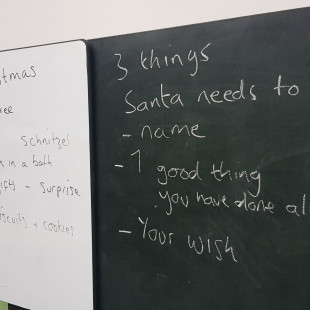 tmas
schnitzel
in a bath
- surprise
+ cookies
3 things
Santa needs to
- name
- 1 good thing
you have done al
- Your wish